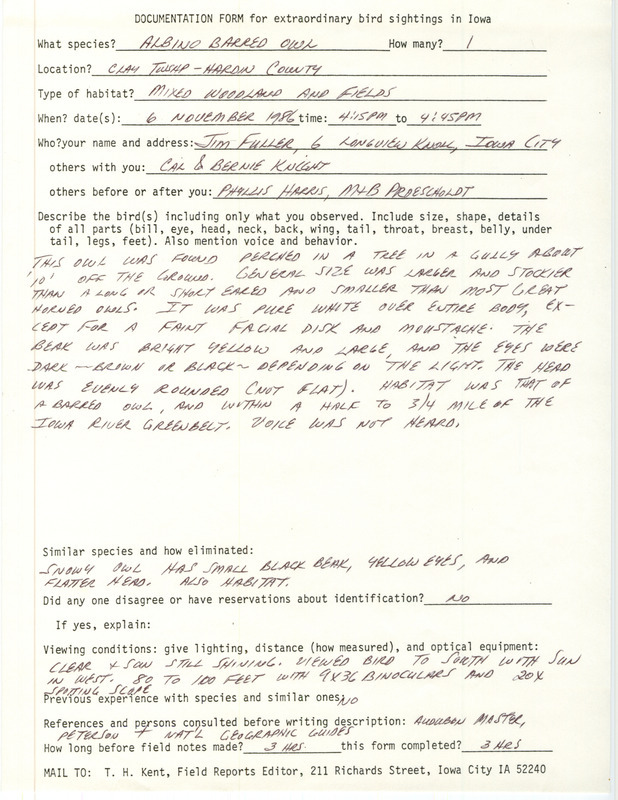 DOCUMENTATION FORM for extraordinary bird sightings in Iowa
What species? ALBINO BARRED OWL How many? 1
Location? CLAY TWSP - HARDIN COUNTY
Type of habitat? MIXED WOODLAND AND FIELDS
When? date(s): 6 NOVEMBER 1986 time: 4:15PM to 4:45PM
Who?your name and address: JIM FULLER, 6 LONGVIEW KNOLL, IOWA CITY
others with you: CAL & BERNIE KNIGHT
others before or after you: PHYLLIS HARRIS, M+B PROESCHOLDT
Describe the bird(s) including only what you observed. Include size, shape, details
of all parts (bill, eye, head, neck, back, wing, tail, throat, breast, belly, under
tail, legs, feet). Also mention voice and behavior.
THIS OWL WAS FOUND PERCHED IN A TREE IN A GULLY ABOUT
10' OFF THE GROUND. GENERAL SIZE WAS LARGER AND STOCKIER
THAN A LONG OR SHORT EARED AND SMALLER THAN MOST GREAT
HORNED OWLS. IT WAS PURE WHITE OVER ENTIRE BODY, EX-
CEPT FOR A FAINT FACIAL DISK AND MOUSTACHE. THE
BEAK WAS BRIGHT YELLOW AND LARGE, AND THE EYES WERE
DARK - BROWN OR BLACK - DEPENDING ON THE LIGHT. THE HEAD
WAS EVENLY ROUNDED (NOT FLAT). HABITAT WAS THAT OF
A BARRED OWL, AND WITHIN A HALF TO 3/4 MILE OF THE
IOWA RIVER GREENBELT. VOICE WAS NOT HEARD.
Similar species and how eliminated:
SNOWY OWL HAS SMALL BLACK BEAK, YELLOW EYES, AND
FLATTER HEAD. ALSO HABITAT.
Did any one disagree or have reservations about identification? NO
If yes, explain:
Viewing conditions: give lighting, distance (how measured), and optical equipment:
CLEAR + SUN STILL SHINING. VIEWED BIRD TO SOUTH WITH SUN
IN WEST. 80 TO 100 FEET WITH 9X36 BINOCULARS AND 20X
SPOTTING SCOPE
Previous experience with species and similar ones: NO
References and persons consulted before writing description: AUDUBON MASTER,
PETERSON + NAT'L GEOGRAPHIC GUIDES
How long before field notes made? 3 HRS. this form completed? 3 HRS
MAIL TO: T. H. Kent, Field Reports Editor, 211 Richards Street, Iowa City IA 52240